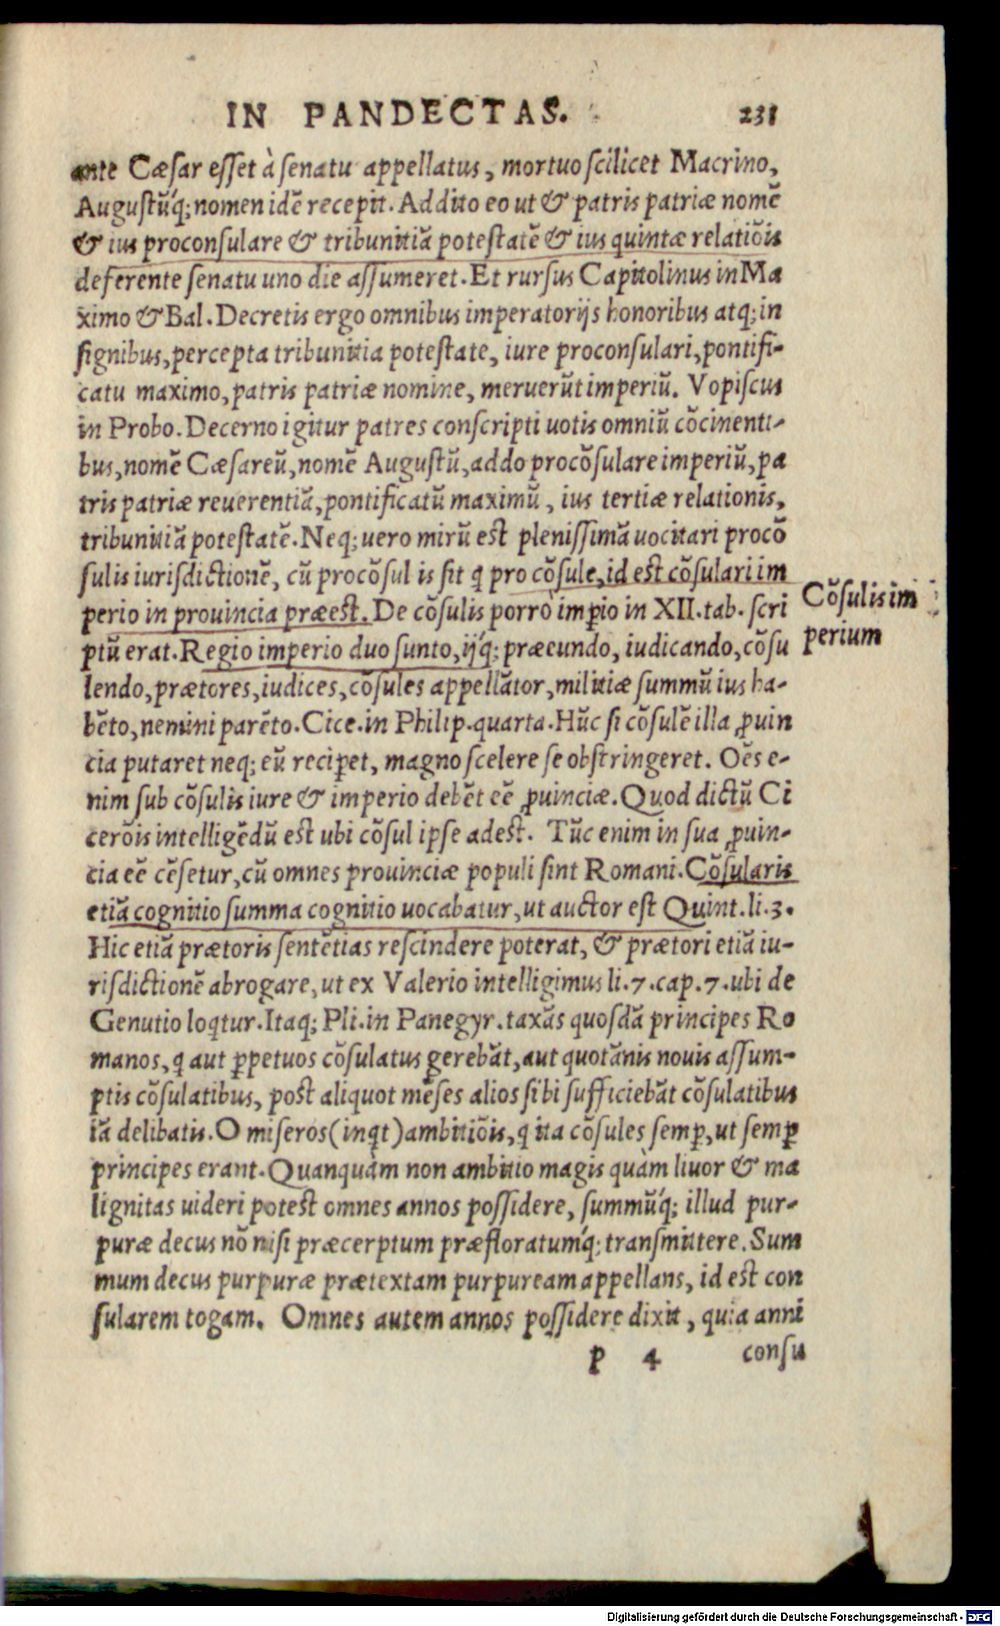 IN PANDECTAS. 231
ante Cæsar esset à senatu appellatus, mortuo scilicet Macrino,
Augustũq́; nomen idẽ recepit. Addito eo ut & patris patriæ nomẽ
& ius proconsulare & tribunitiã potestatẽ & ius quintæ relatiõis
deferente senatu uno die assumeret. Et rursus Capitolinus in Ma
ximo & Bal. Decretis ergo omnibus imperatorijs honoribus atq; in
signibus, percepta tribunitia potestate, iure proconsulari, pontifi-
catu maximo, patris patriæ nomine, meruerũt imperiũ. Vopiscus
in Probo. Decerno igitur patres conscripti uotis omniũ cõcinenti-
bus, nomẽ Cæsareũ, nomẽ Augustũ, addo procõsulare imperiũ, pa
tris patriæ reuerentiã, pontificatũ maximũ, ius tertiæ relationis,
tribunitiã potestatẽ. Neq; uero mirũ est plenissimã uocitari procõ
sulis iurisdictionẽ, cũ procõsul is sit q̃ pro cõsule, id est cõsulari im
perio in prouincia præest. De cõsulis porrò imꝑio in XII. tab. scri
ptũ erat. Regio imperio duo sunto, ijq́; præeundo, iudicando, cõsu
lendo, prætores, iudices, cõsules appellãtor, militiæ summũ ius ha-
bẽto, nemini parẽto. Cice. in Philip. quarta. Hũc si cõsulẽ illa ꝓuin
cia putaret neq; eũ reciꝑet, magno scelere se obstringeret. Oẽs e-
nim sub cõsulis iure & imperio debẽt eẽ ꝓuinciæ. Quod dictũ Ci
cerõis intelligẽdũ est ubi cõsul ipse adest. Tũc enim in sua ꝓuin-
cia eẽ cẽsetur, cũ omnes prouinciæ populi sint Romani. Cõsularis
etiã cognitio summa cognitio uocabatur, ut auctor est Quint. li. 3.
Hic etiã prætoris sentẽtias rescindere poterat, & prætori etiã iu-
risdictionẽ abrogare, ut ex Valerio intelligimus li. 7. cap. 7. ubi de
Genutio loq̃tur. Itaq; Pli. in Panegyr. taxãs quosdã principes Ro
manos, q̃ aut ꝑpetuos cõsulatus gerebãt, aut quotãnis nouis assum-
ptis cõsulatibus, post aliquot mẽses alios sibi sufficiebãt cõsulatibus
iã delibatis. O miseros (inq̃t) ambitiõis, q̃ ita cõsules semꝑ, ut semꝑ
principes erant. Quanquàm non ambitio magis quàm liuor & ma
lignitas uideri potest omnes annos possidere, summũq́; illud pur-
puræ decus nõ nisi præcerptum præfloratumq́; transmittere. Sum
mum decus purpuræ prætextam purpuream appellans, id est con
sularem togam. Omnes autem annos possidere dixit, quia anni
p 4 consu
Cõsulis im
perium
Digitalisierung gefördert durch die Deutsche Forschungsgemeinschaft - DFG